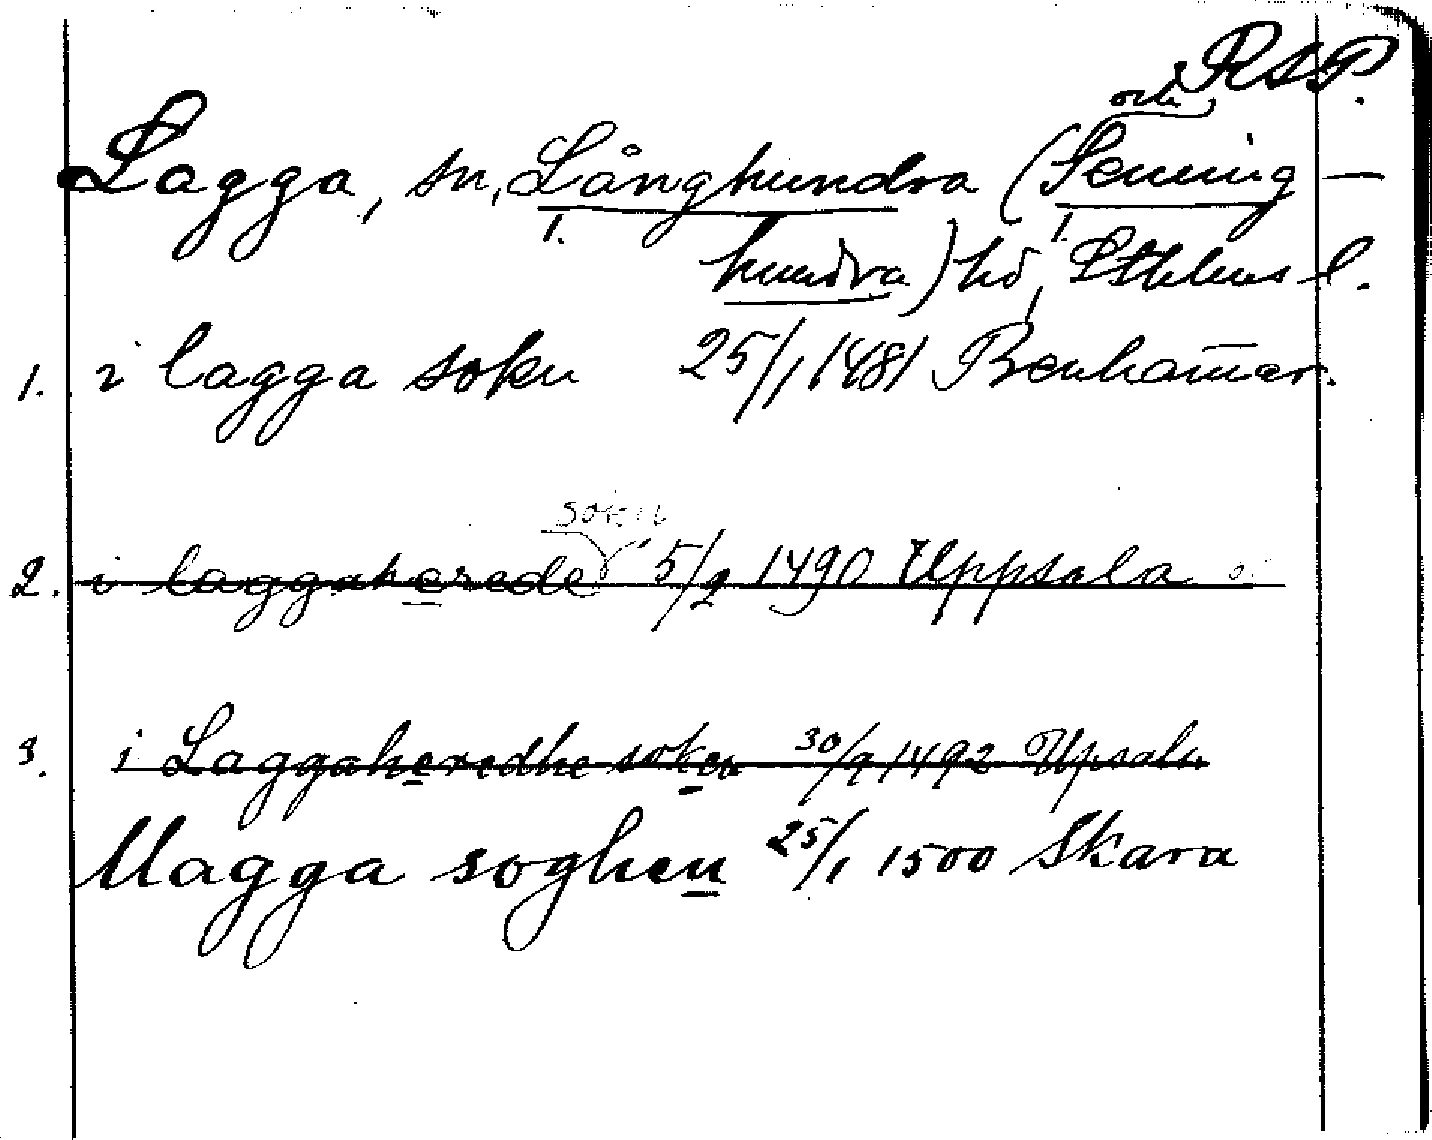 RAP.
och
Lagga, sn, Långhundra (Seming-
1. 1.
hundra) hd, Sthlms l.
1. i lagga sokn 25/1 1481 Benhamar.
sokn
2. i laggaherede 5/2 1490 Uppsala
3. i Laggaheredhe soken 30/9 1492 Upsala
Magga soghen 25/1 1500 Skara